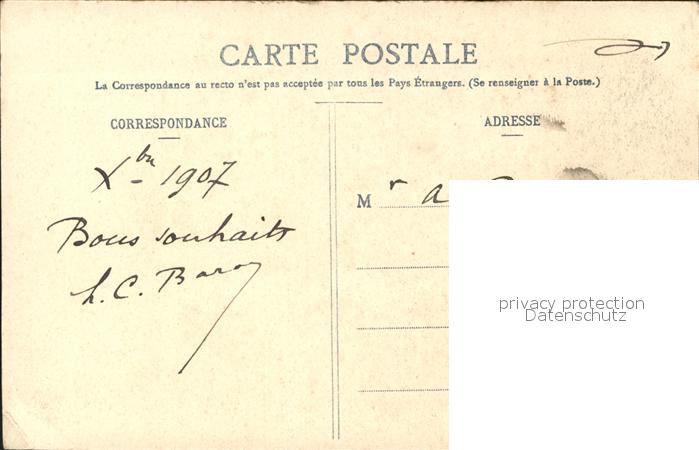 CARTE POSTALE
La Correspondance au recto n'est pas acceptée par tous les Pays Étrangers. (Se renseigner à la Poste.)
CORRESPONDANCE
Xbre 1907
Bons souhaits
h. C. Baron
ADRESSE
M r a
privacy protection
Datenschutz